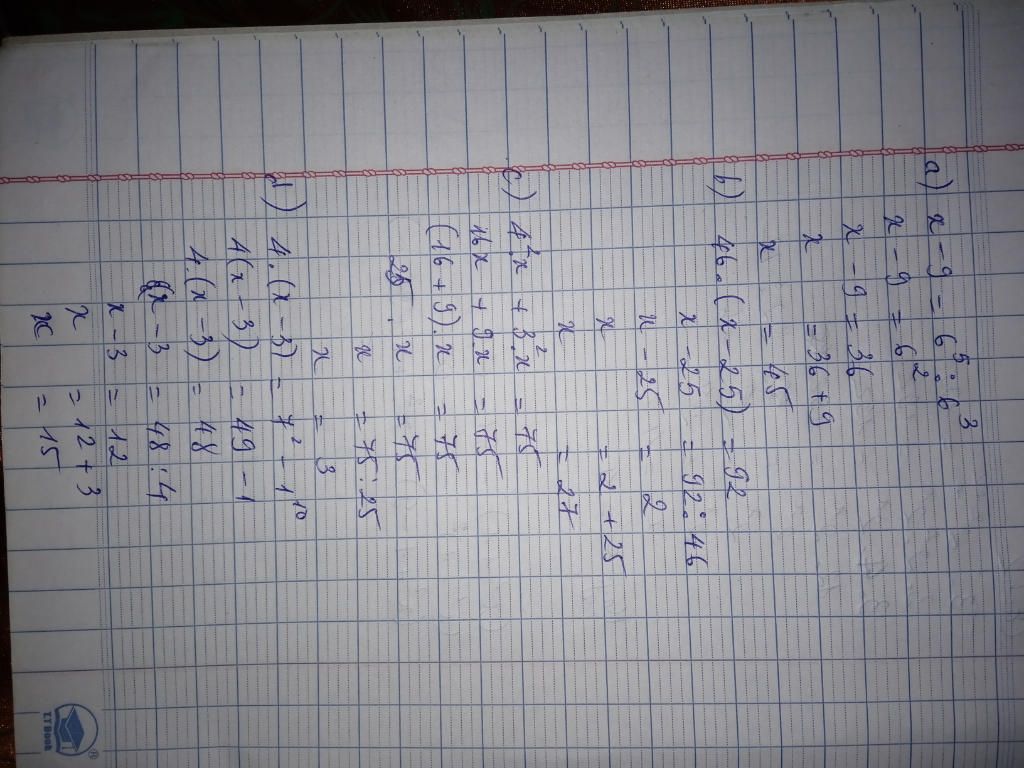 a) x - 9 = 6⁵ : 6³
x - 9 = 6²
x - 9 = 36
x = 36 + 9
x = 45
b) 46. (x - 25) = 92
x - 25 = 92 : 46
x - 25 = 2
x = 2 + 25
x = 27
c) 4².x + 3².x = 75
16x + 9.x = 75
(16 + 9).x = 75
25.x = 75
x = 75 : 25
x = 3
d) 4.(x - 3) = 7² - 1¹⁰
4(x - 3) = 49 - 1
4.(x - 3) = 48
x - 3 = 48 : 4
x - 3 = 12
x = 12 + 3
x = 15
LTBook
®